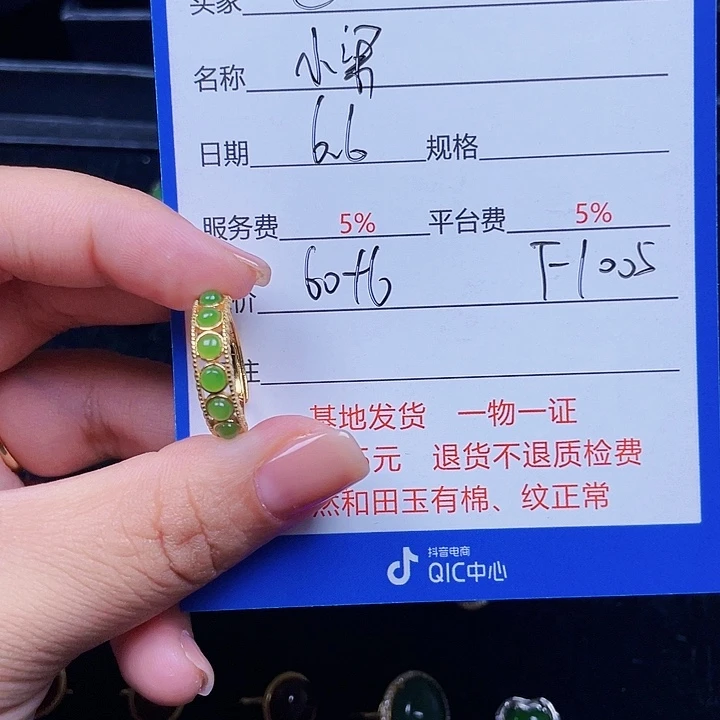 买家
名称 小梁
日期 6.6 规格
服务费 5% 平台费 5%
价 60+6 T-1005
注
基地发货 一物一证
元 退货不退质检费
然和田玉有棉、纹正常
抖音电商
QIC中心